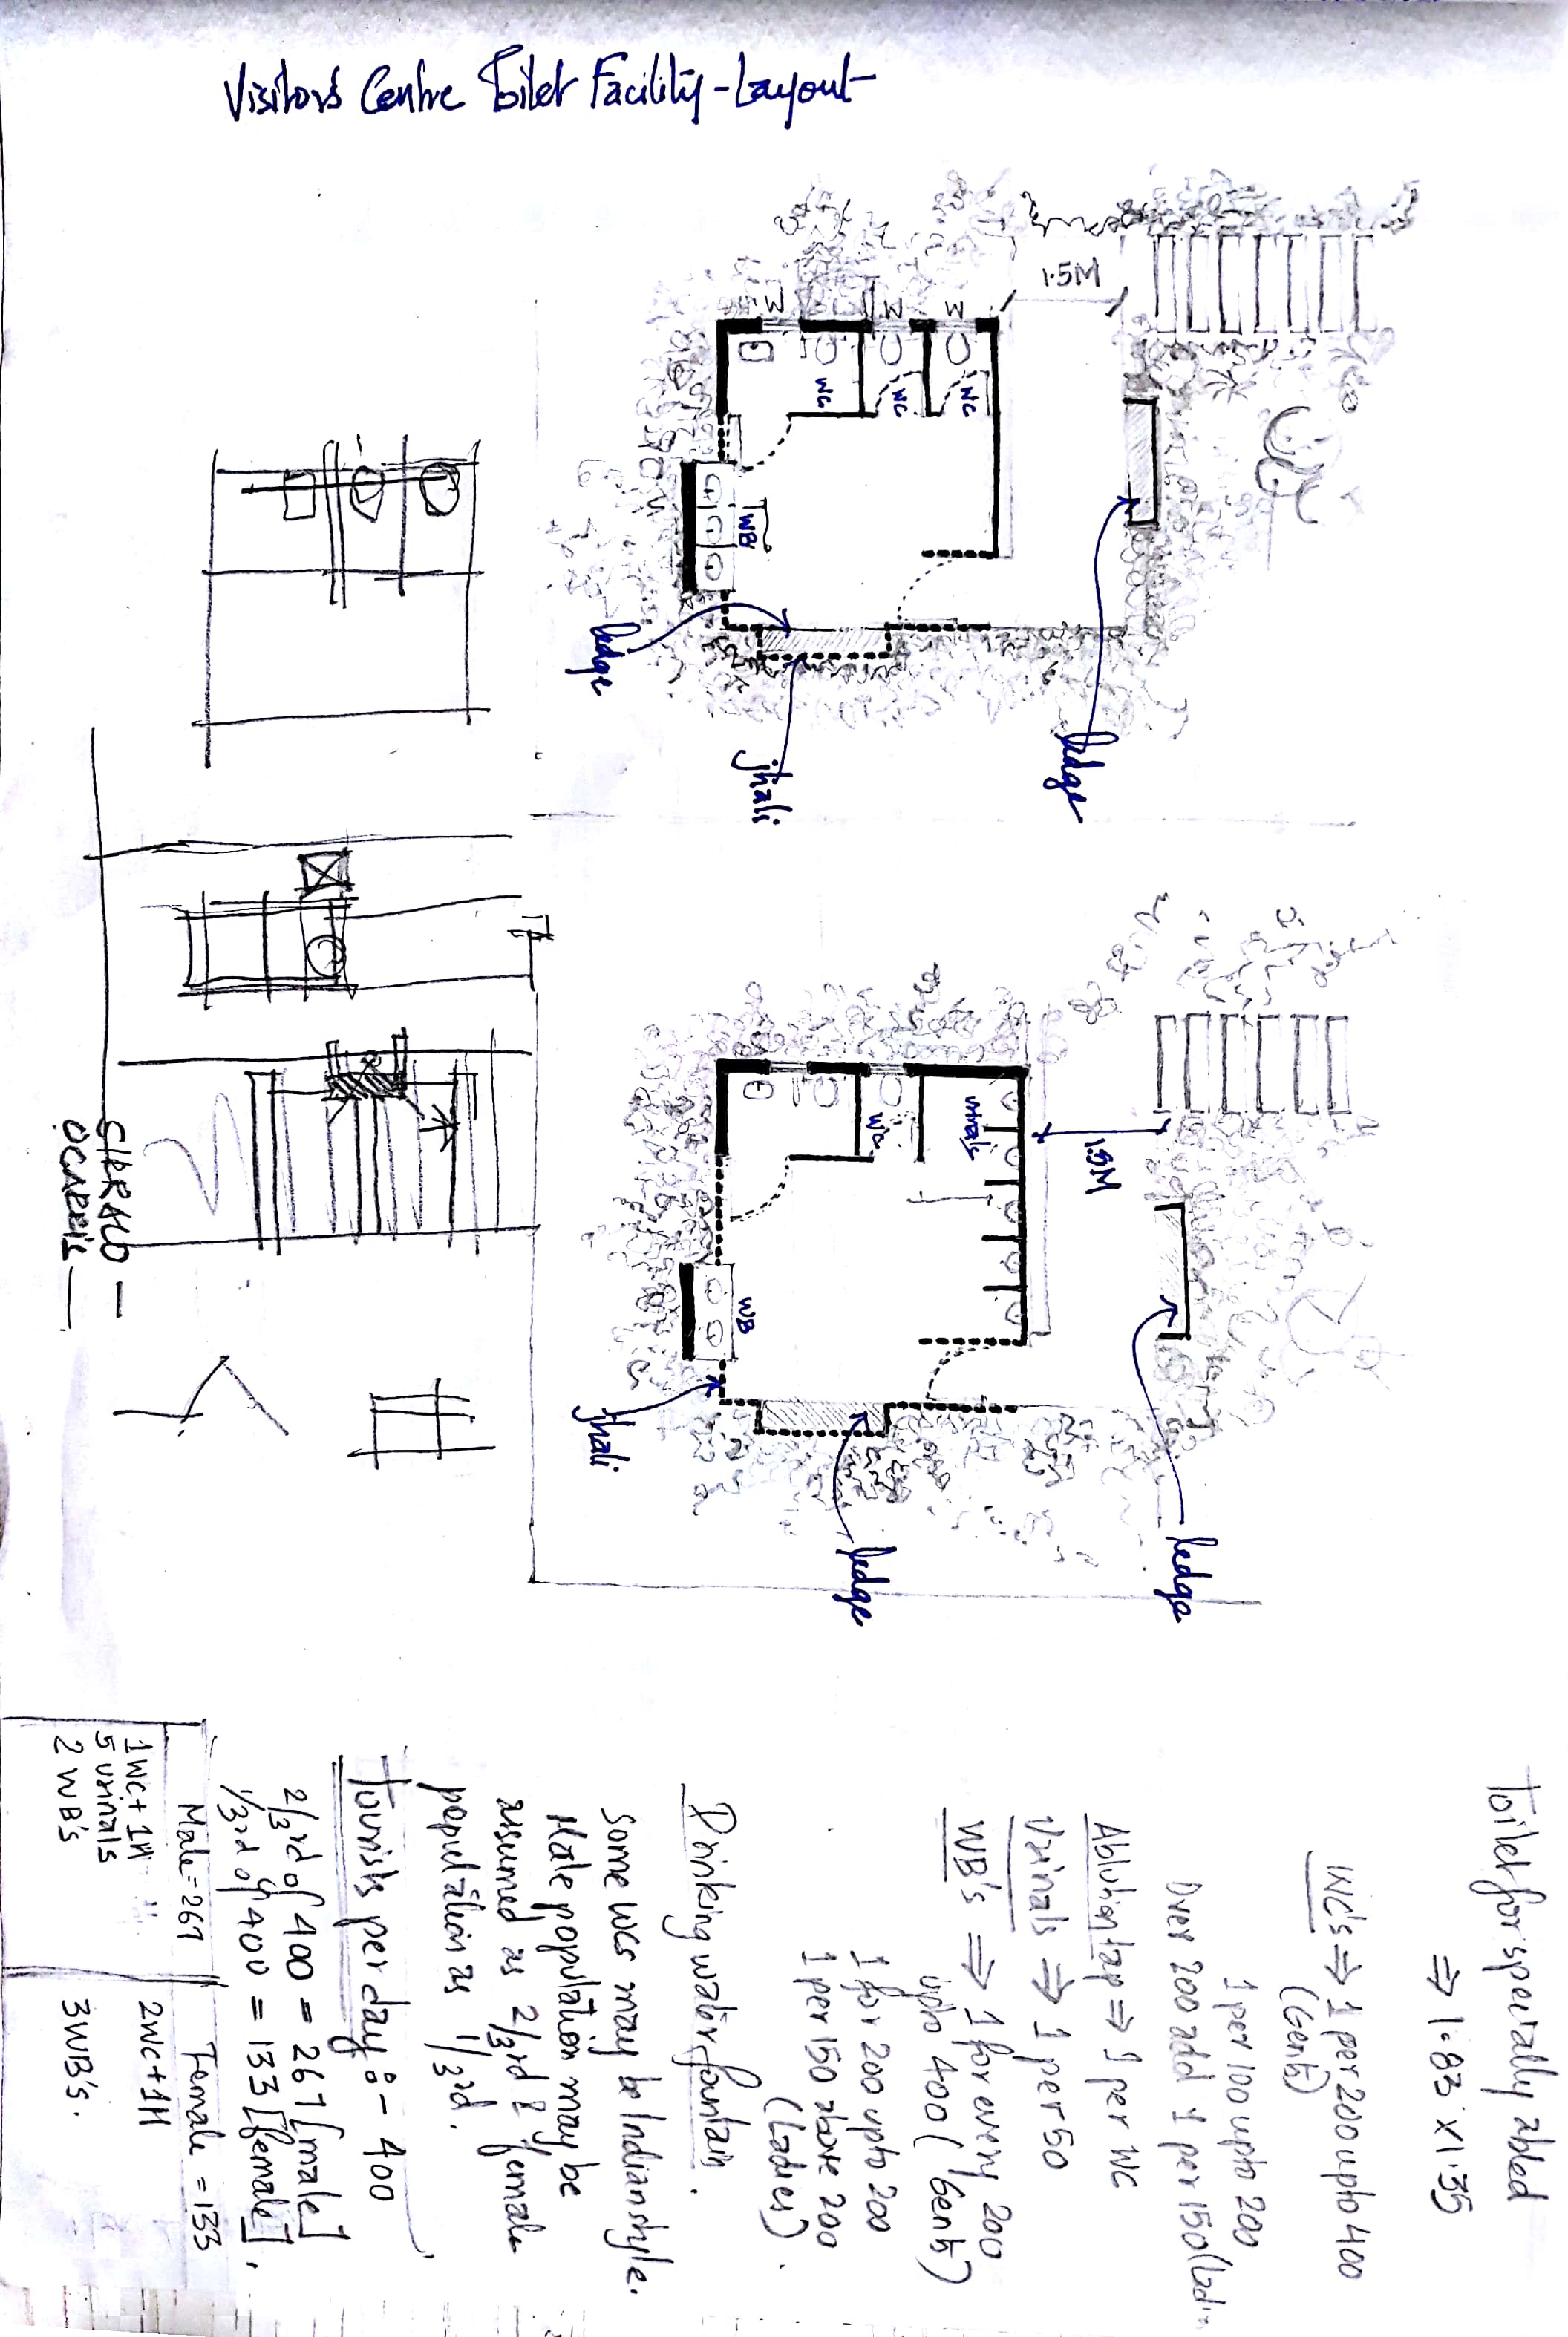 Visitors Centre Toilet Facility - Layout
1.5M
W
W
W
WC
WC
WC
WB
ledge
jhali
ledge
1.5M
urinals
WC
WB
jhali
ledge
ledge
Toilet for specially abled
⇒ 1.83 x 1.35
WC's ⇒ 1 per 200 upto 400
(Gents)
1 per 100 upto 200
Over 200 add 1 per 150 (Ladies
Ablution tap ⇒ 1 per WC
Urinals ⇒ 1 per 50
WB's ⇒ 1 for every 200
upto 400 (Gents)
1 for 200 upto 200
1 per 150 above 200
(Ladies).
Drinking water fountain.
Some WCs may be Indian style.
Male population may be
assumed as 2/3rd & female
population as 1/3rd.
Tourists per day :- 400
2/3rd of 400 = 267 [male]
1/3rd of 400 = 133 [female].
Male = 267
Female = 133
1WC + 1H
5 urinals
2 WB's
2WC + 1H
3WB's.